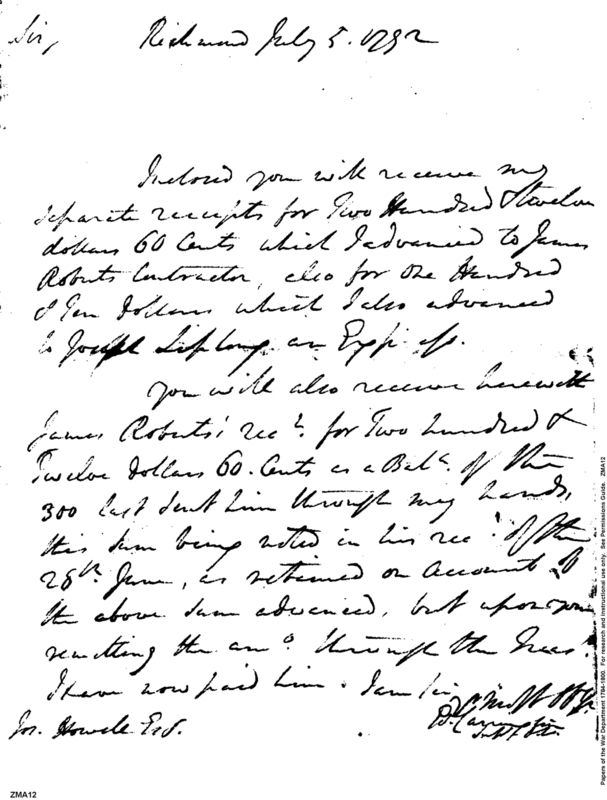 Sir, Richmond July 5. 1792
Inclosed you will receive my
separate receipts for Two Hundred & twelve
dollars 60 Cents which I advanced to James
Roberts Contractor, also for One Hundred
& Ten Dollars which I also advanced
to Joseph an Express.
You will also receive herewith
James Roberts' rect. for Two hundred &
Twelve Dollars 60. Cents as a Bale. of the
300 last sent him through my hands,
this sum being noted in his rect. of the
28th. June, as retained on Account of
the above sum advanced, but upon your
remitting the amo. through the Treas.
I have now paid him. I am Sir
Yr. Mo. Ob
Jos. Howell Esq. E. Carrington
ZMA12
Papers of the War Department 1784-1800. For research and instructional use only. See Permissions Guide. ZMA12